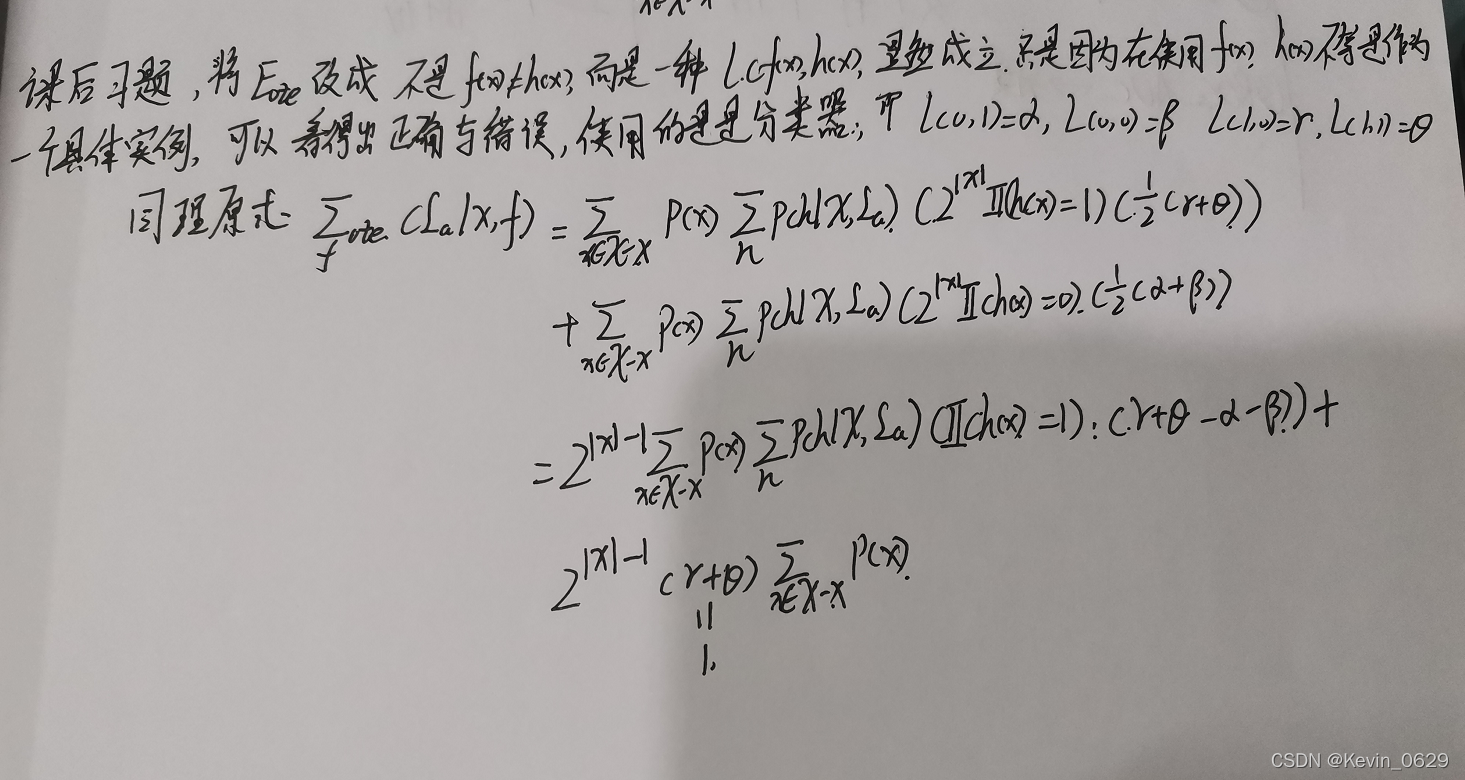 x∈X-X
课后习题,将Eote改成 不是f(x)≠h(x),而是一种 L(f(x),h(x)),显然成立.只是因为在使用f(x), h(x)不等是作为
一个具体实例,可以看得出正确与错误,使用的是是分类器; 即 L(0,1)=α, L(0,0)=β L(1,0)=r, L(1,1)=θ
同理原式: Σ_f ote.(£a|X,f) = Σ_{x∈X-X} P(x) Σ_h P(h|X,£a) (2^{|X|} Ⅱ(h(x)=1)(½(r+θ)))
+ Σ_{x∈X-X} P(x) Σ_h P(h|X,£a) (2^{|X|} Ⅱ(h(x)=0).(½(α+β)))
= 2^{|X|-1} Σ_{x∈X-X} P(x) Σ_h P(h|X,£a) (Ⅱ(h(x)=1).(r+θ-α-β)) +
2^{|X|-1} (r+θ) Σ_{x∈X-X} P(x).
||
1.
CSDN @Kevin_0629